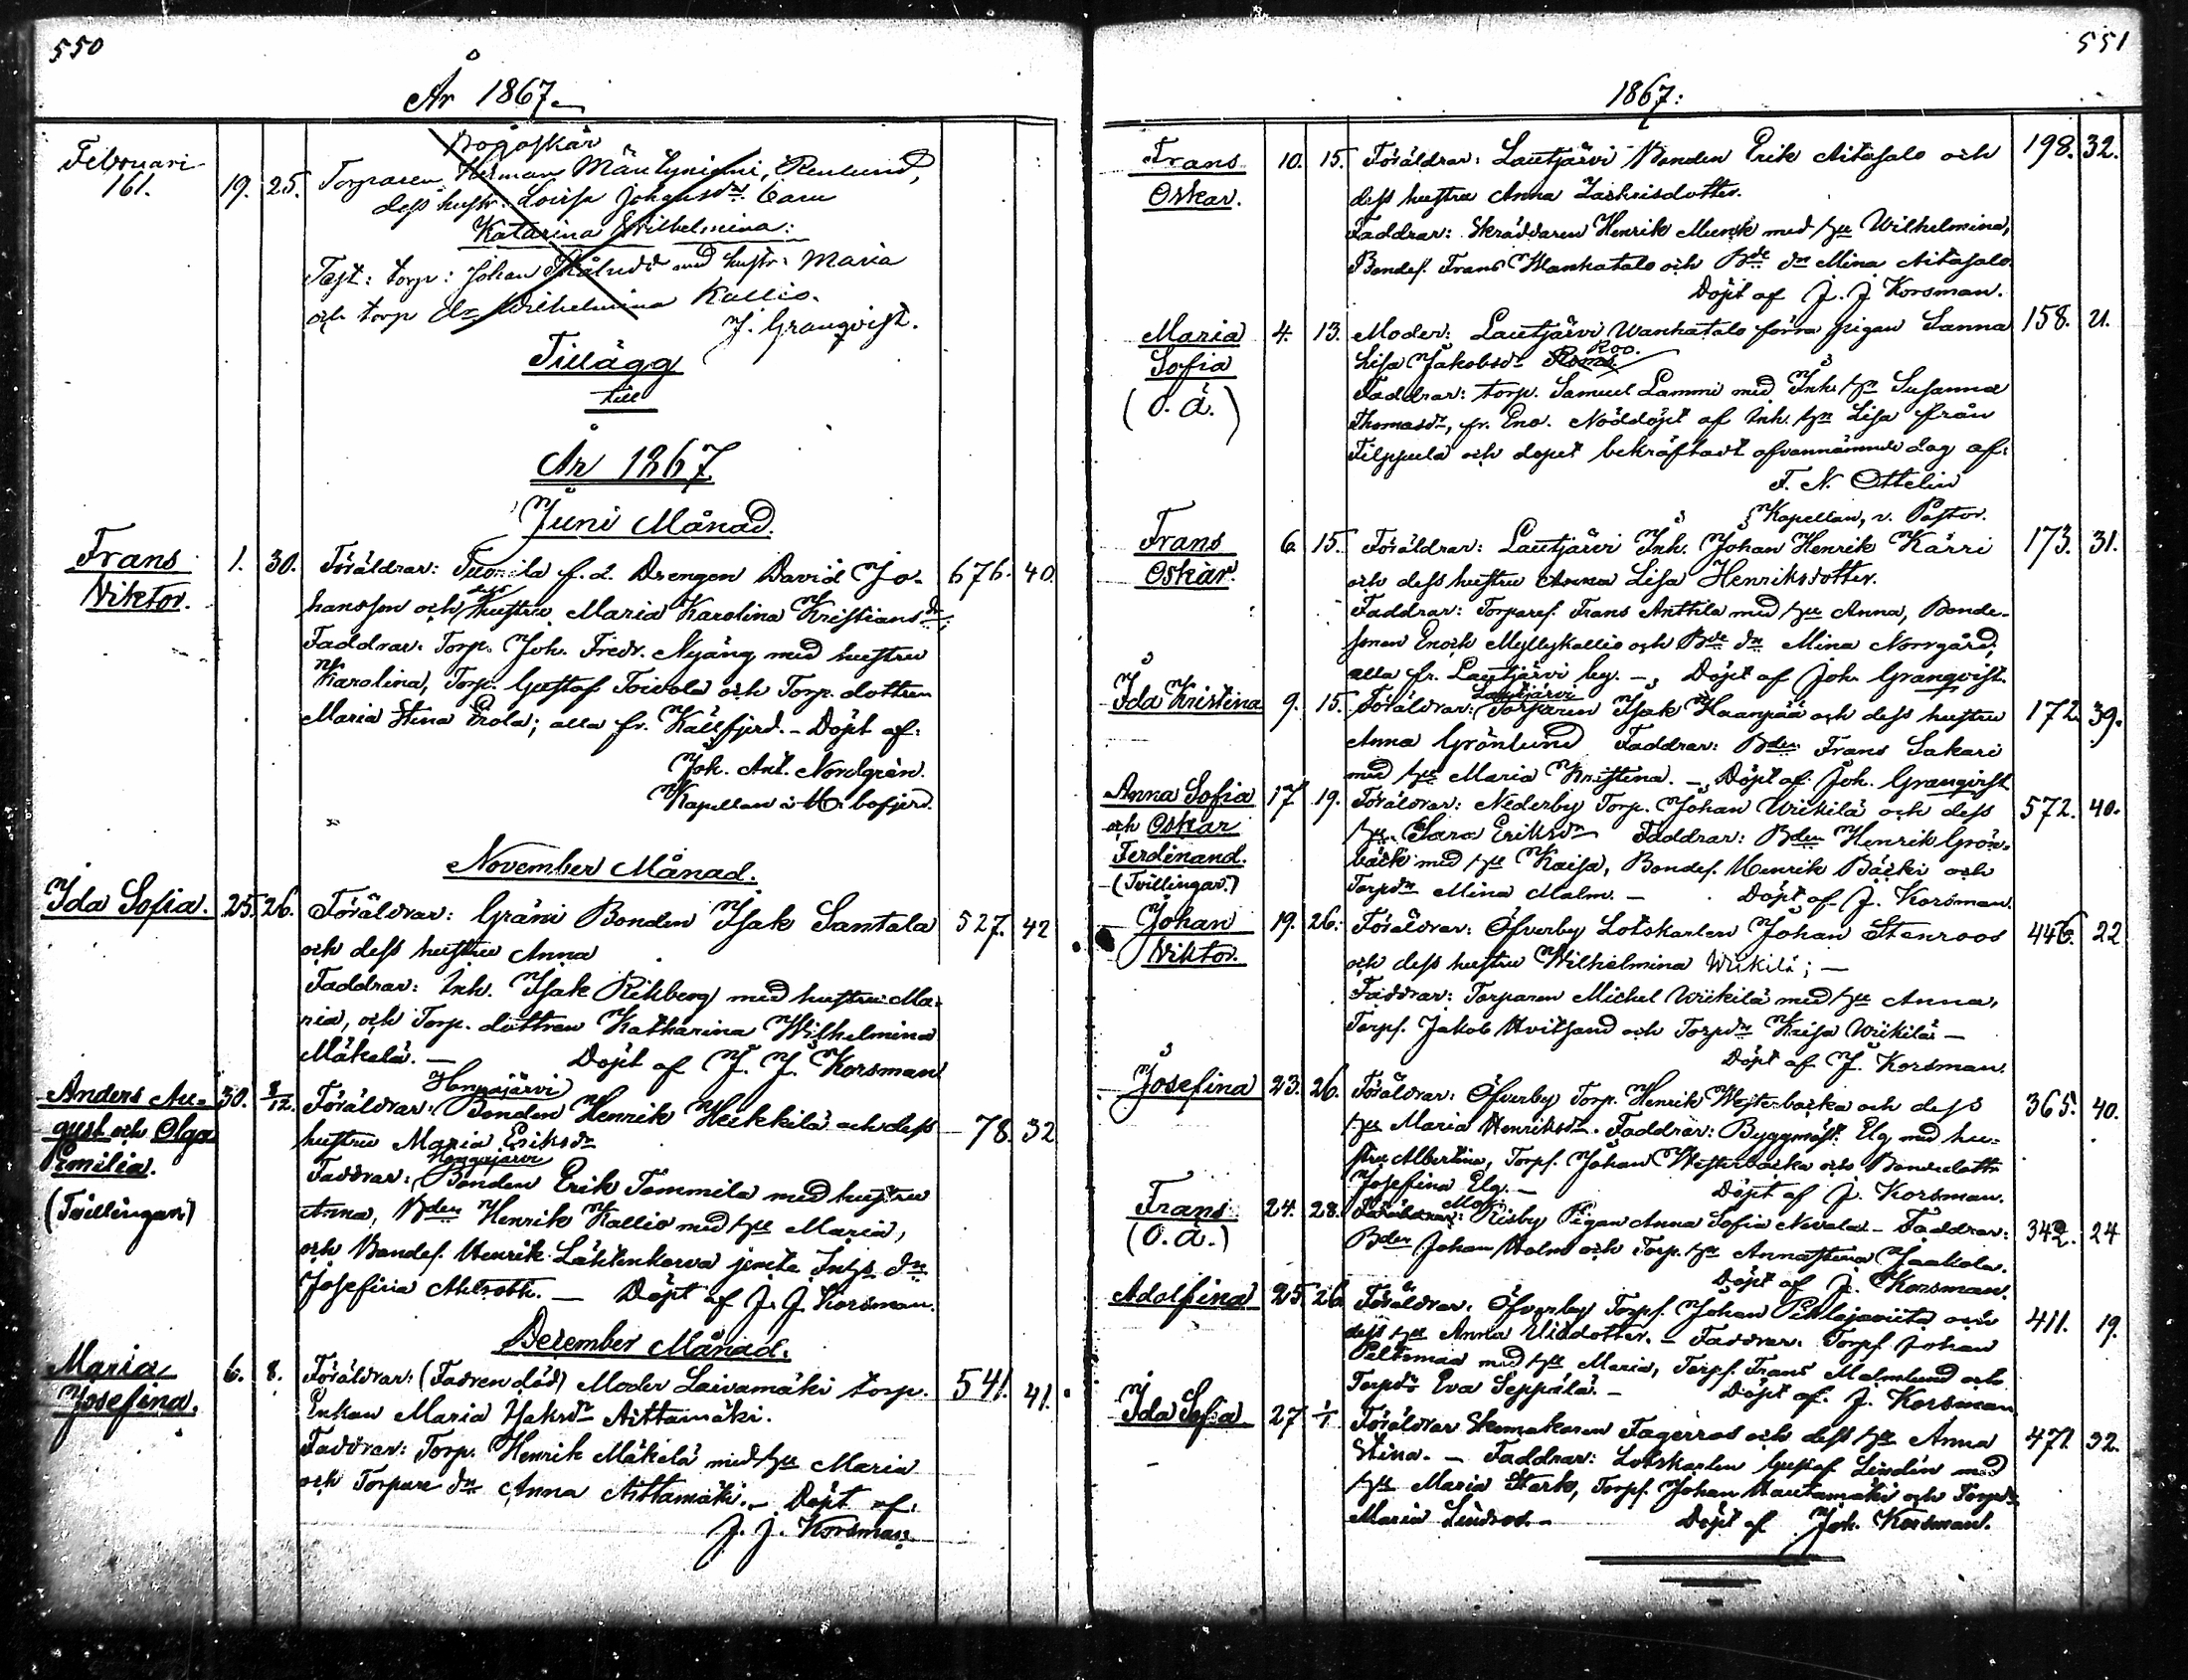 550
År 1867.
Februari
161. 19. 25. Torparen Herman Mäntyniemi, Renlund,
dess hustr: Lovisa Johansdr. barn
Katarina Wilhelmina:
Test: torp: Johan med hustr: Maria
och torp dr Wilhelmina Kallio.
J. Granqvist.
Tillägg
till
År 1867.
Juni Månad.
Frans 1. 30. Föräldrar: Tuorila f. d. Drengen David Jo- 676. 40.
Viktor. hansson och dess hustru Maria Karolina Kristiansdr;
Faddrar: Torp. Joh. Fredr. Nyäng med hustru
Karolina, Torp. Gustaf Toivola och Torp. dottren
Maria Stina Erola; alla fr. Kållfjerd. - Döpt af:
Joh. Ant. Nordgrén.
Kapellan i
November Månad.
Ida Sofia. 25. 26. Föräldrar: Gräsi Bonden Isak Santala 527. 42
och dess hustru Anna
Faddrar: Inh. Isak Rihberg med hustru Ma-
ria, och Torp. dottren Katharina Wilhelmina
Mäkelä. — Döpt af J. J. Korsman.
Honjajärvi
Anders Au- 30. 8/12. Föräldrar: Bonden Henrik Heikkilä och dess 78. 32
gust och Olga hustru Maria Eriksdr
Emilia. Honjajärvi
(Tvillingar) Faddrar: Bonden Erik Tommila med hustru
Anna, Bden Henrik Kallio med hu Maria,
och Bondes. Henrik Lähtenkorva jemte Inhs dr
Josefina Ahlroth. — Döpt af J. J. Korsman.
December Månad.
Maria 6. 8. Föräldrar: (Fadren död) Moder Laivamäki torp. 541. 41.
Josefina. Enkan Maria Isaksdr Aittamäki.
Faddrar: Torp. Henrik Mäkelä med hu Maria
och Torpare dr Anna Aittamäki. - Döpt af:
J. J. Korsman
551
1867:
Frans 10. 15. Föräldrar: Lautjärvi Bonden Erik Aitasalo och 198. 32.
Oskar. dess hustru Anna Zachrisdotter.
Faddrar: Skräddaren Henrik Munsk med hu Wilhelmina,
Bondes. Frans Wanhatalo och Bde dr Mina Aitasalo.
Döpt af J. J. Korsman.
Maria 4. 13. Moder: Lautjärvi Wanhatalo förra pigan Sanna 158. 21.
Sofia Lisa Jakobsdr Roo.
(O. ä.) Faddrar: torp. Samuel Lammi med Inh. hu Susanna
Thomasdr, fr. Eno. Nöddöpt af Inh. hu Lisa från
Filppula och dopet bekräftadt ofvannämnde dag af:
F. N. Ottelin
Kapellan, v. Pastor.
Frans 6. 15. Föräldrar: Lautjärvi Inh. Johan Henrik Kärri 173. 31.
Oskar. och dess hustru Anna Lisa Henriksdotter.
Faddrar: Torpares. Frans Anttila med hu Anna, Bonde-
sonen Enoch Myllykallio och Bde dr Mina Norrgård;
alla fr. Lautjärvi by. - Döpt af Joh. Granqvist.
Lautjärvi
Ida Kristina 9. 15. Föräldrar: Torparen Isak Haanpää och dess hustru 172. 39.
Anna Grönlund Faddrar: Bden Frans Sakari
med hu Maria Kristina. - Döpt af: Joh. Granqvist
Anna Sofia 17. 19. Föräldrar: Nederby Torp. Johan Wiikilä och dess 572. 40.
och Oskar hu Sara Eriksdr Faddrar: Bden Henrik Grön-
Ferdinand. bäck med hu Kaisa, Bondes. Henrik Bäcki och
(Tvillingar.) Torpdr Mina Malm. - Döpt af J. Korsman.
Johan 19. 26. Föräldrar: Öfverby Lotskarlen Johan Stenroos 446. 22
Viktor. och dess hustru Wilhelmina Wiikilä; -
Faddrar: Torparen Michel Wiikilä med hu Anna,
Torps. Jakob Hvitsand och Torpdr Kaisa Wiikilä -
Döpt af J. Korsman.
Josefina 23. 26. Föräldrar: Öfverby Torp. Henrik Westerbacka och dess 365. 40.
hu Maria Henriksdr. Faddrar: Byggmäst. Elg med hu-
stru Albertina, Torps. Johan Westerbacka och Bondedottr
Josefina Elg. - Döpt af J. Korsman.
Frans 24. 28. Mod: Risby Pigan Anna Sofia Nevala - Faddrar: 342. 24
(O. ä.) Bden Johan Holm och Torp. hu Anna Stina Jaakola.
Döpt af J. Korsman.
Adolfina 25. 26. Föräldrar: Öfverby Torps. Johan Pihlajaviita och 411. 19.
dess hu Anna dotter. - Faddrar: Torps Johan
Peltomaa med hu Maria, Torps. Frans Malmlund och
Torpdr Eva Seppälä. - Döpt af J. Korsman
Ida Sofia 27 1/1 Föräldrar Skomakaren Fagerroos och dess hu Anna 471. 32.
Stina. - Faddrar: Lotskarlen Gustaf Lindén med
hu Maria Stark, Torps. Johan Rautamäki och Torpdr
Maria Lindroos. - Döpt af Joh. Korsman.